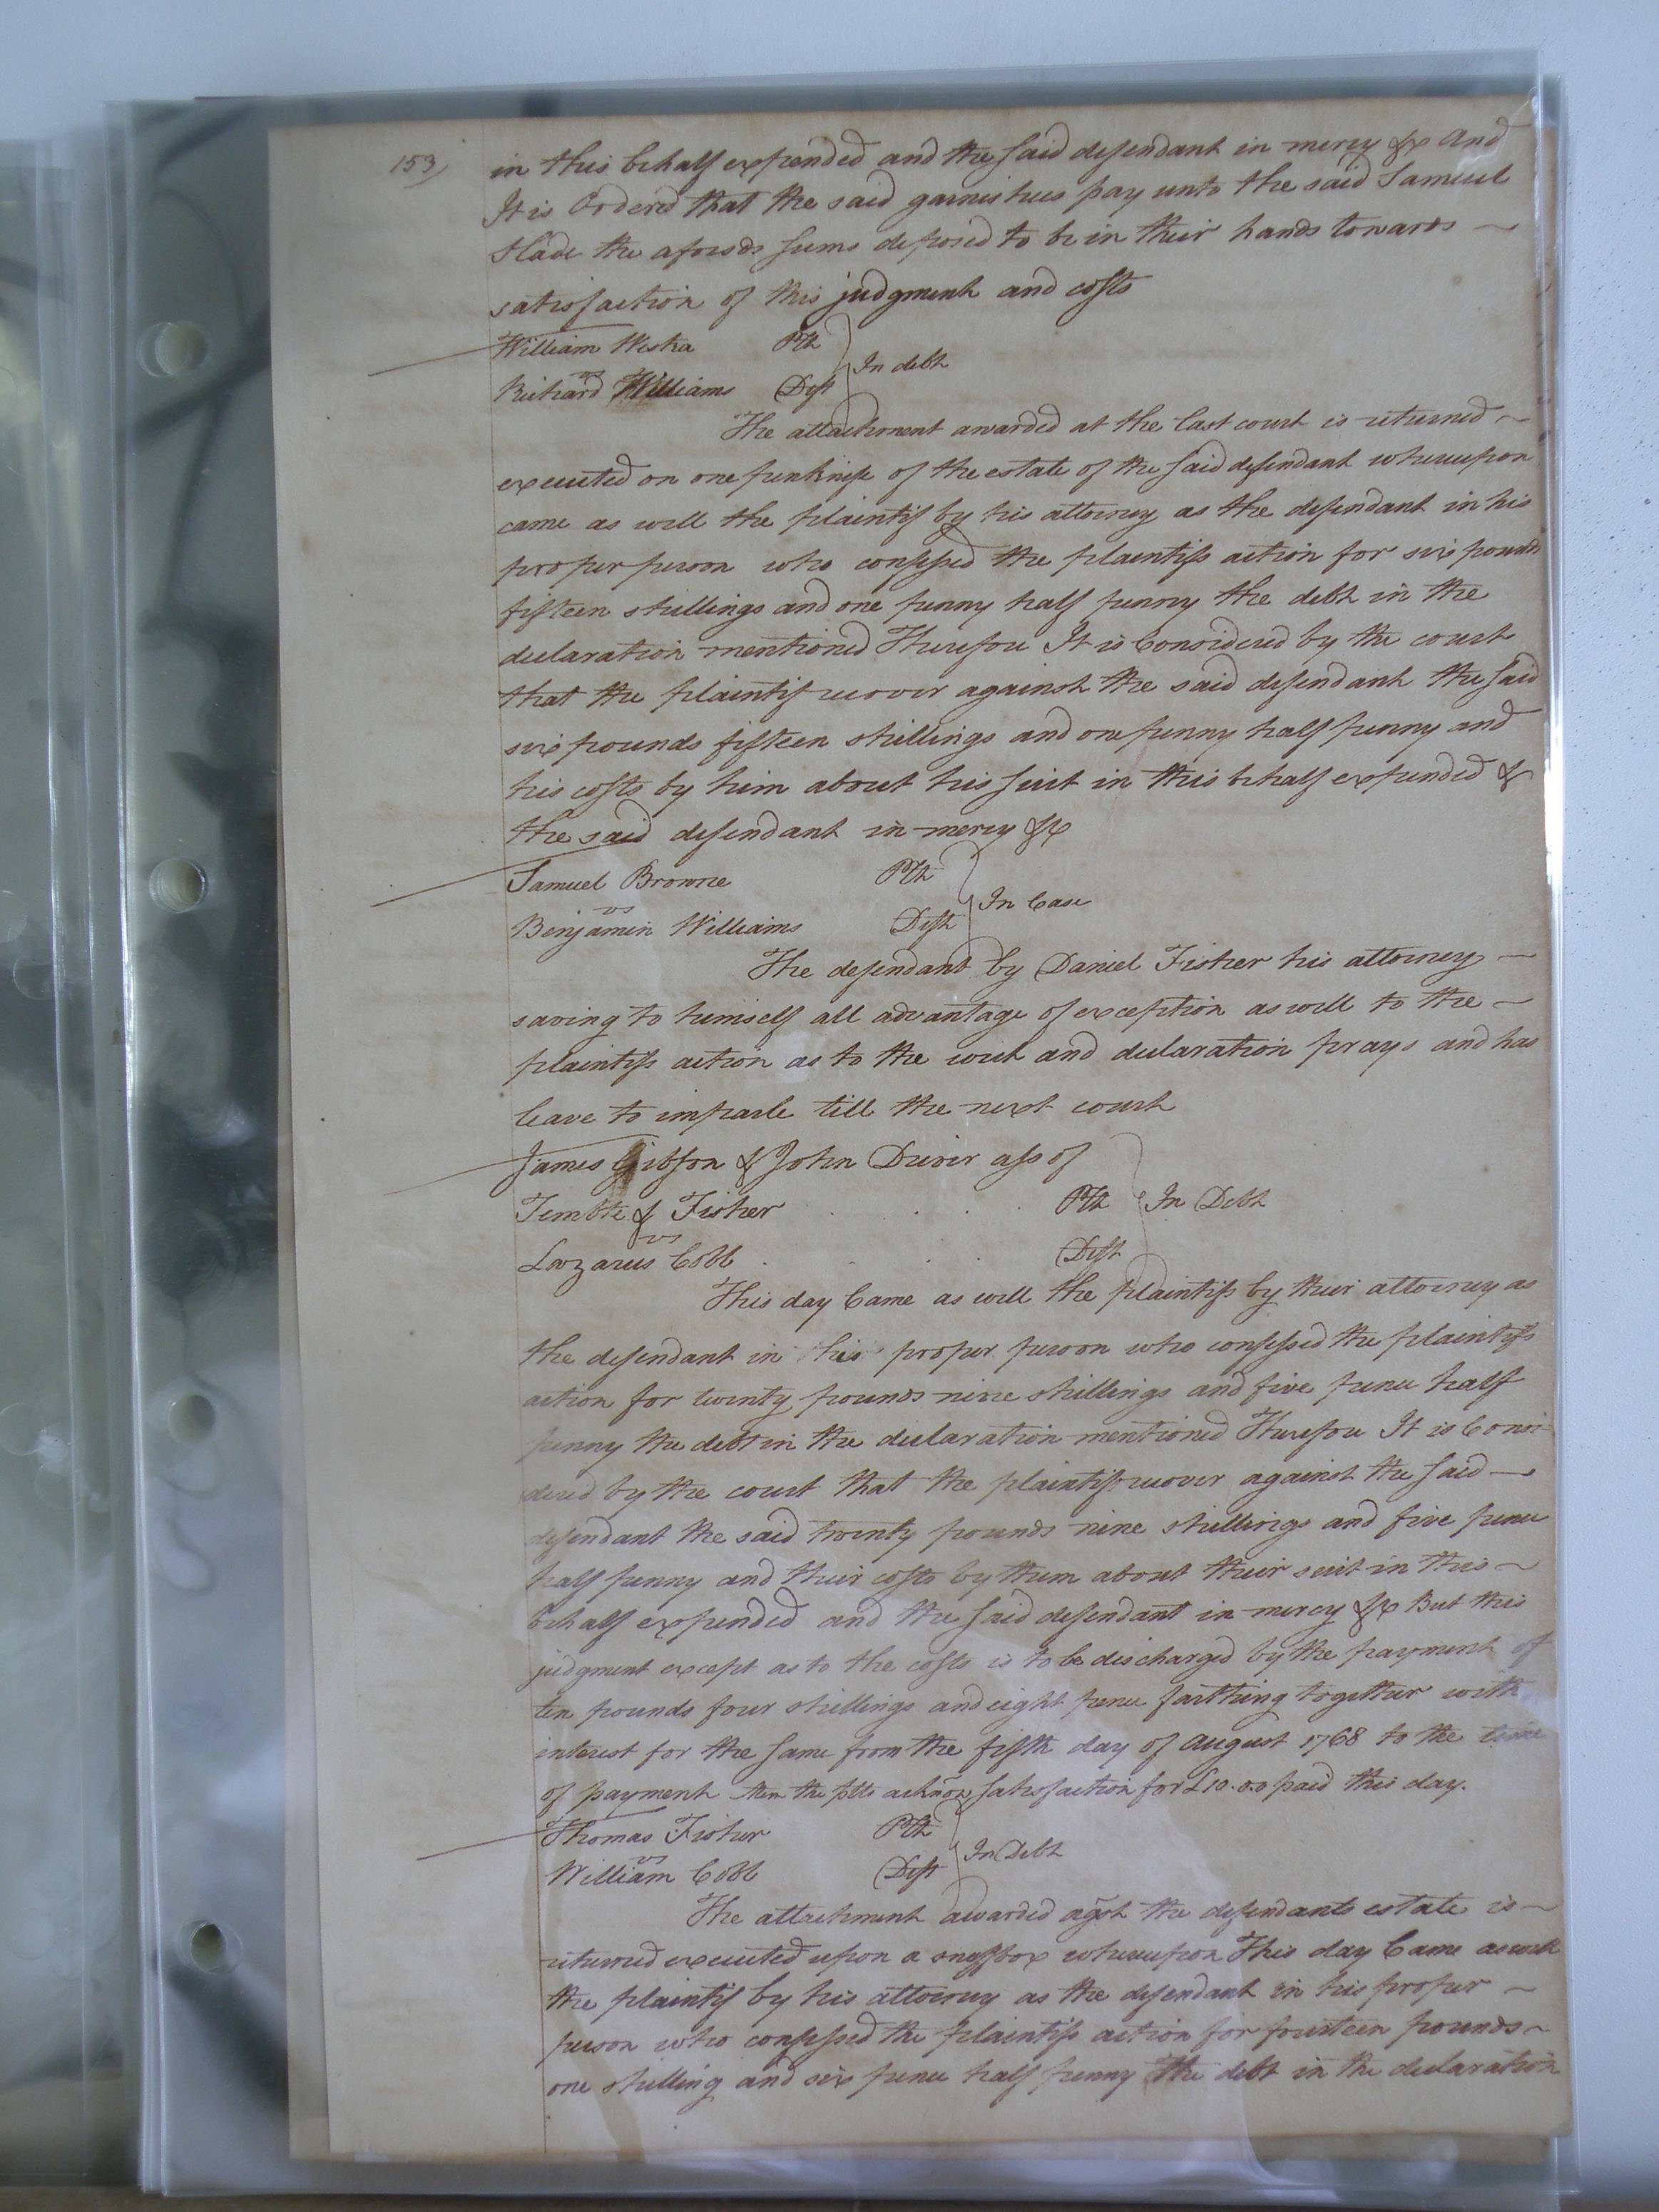 153)
in this behalf expended and the said defendant in mercy &c And
It is Ordered that the said garnishees pay unto the said Samuel
Slade the aforesds sums deposed to be in their hands towards
satisfaction of this judgment and costs
William Pltf
vs In debt
Richard Williams Deft
The attachment awarded at the last court is returned
executed on one penknife of the estate of the said defendant whereupon
came as well the plaintif by his attorney as the defendant in his
proper person who confessed the plaintifs action for six pounds
fifteen shillings and one penny half penny the debt in the
declaration mentioned Therefore It is Considered by the court
that the plaintif recover against the said defendant the said
six pounds fifteen shillings and one penny half penny and
his costs by him about his suit in this behalf expended &
the said defendant in mercy &c
Samuel Browne Pltf
vs In Case
Benjamin Williams Deft
The defendant by Daniel Fisher his attorney
saving to himself all advantage of exception as well to the
plaintifs action as to the writ and declaration prays and has
leave to imparle till the next court
James Gibson & John Driver ass of
& Fisher Pltf In Debt
vs
Lazarus Cobb Deft
This day Came as well the plaintifs by their attorney as
the defendant in his proper person who confessed the plaintifs
action for twenty pounds nine shillings and five pence half
penny the debt in the declaration mentioned Therefore It is Consi-
dered by the court that the plaintifs recover against the said
defendant the said twenty pounds nine shillings and five pence
half penny and their costs by them about their suit in this
behalf expended and the said defendant in mercy &c But this
judgment except as to the costs is to be discharged by the payment of
ten pounds four shillings and eight pence farthing together with
interest for the same from the fifth day of August 1768 to the time
of payment then the plts acknow satisfaction for £10.0.0 paid this day.
Thomas Fisher Pltf
vs In Debt
William Cobb Deft
The attachment awarded agst the defendants estate is
returned executed upon a snuffbox whereupon This day Came as well
the plaintif by his attorney as the defendant in his proper
person who confessed the plaintifs action for fourteen pounds
one shilling and six pence half penny the debt in the declaration